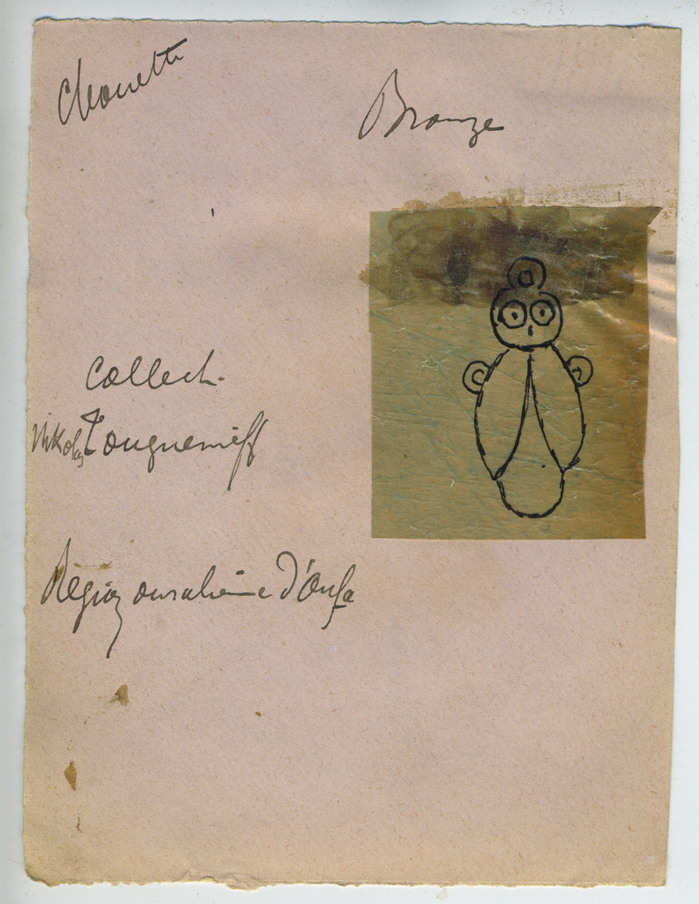 Chouette
Bronze
Collect.
Nikolas
Région ouralienne d'Oufa